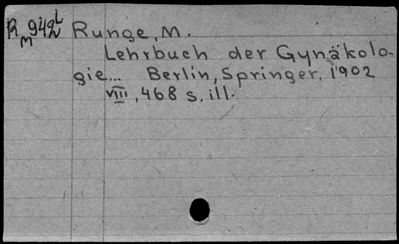 R 942L Runge, M.
M
Lehrbuch der Gynäkolo-
gie... Berlin, Springer, 1902
VIII, 468 s. ill.